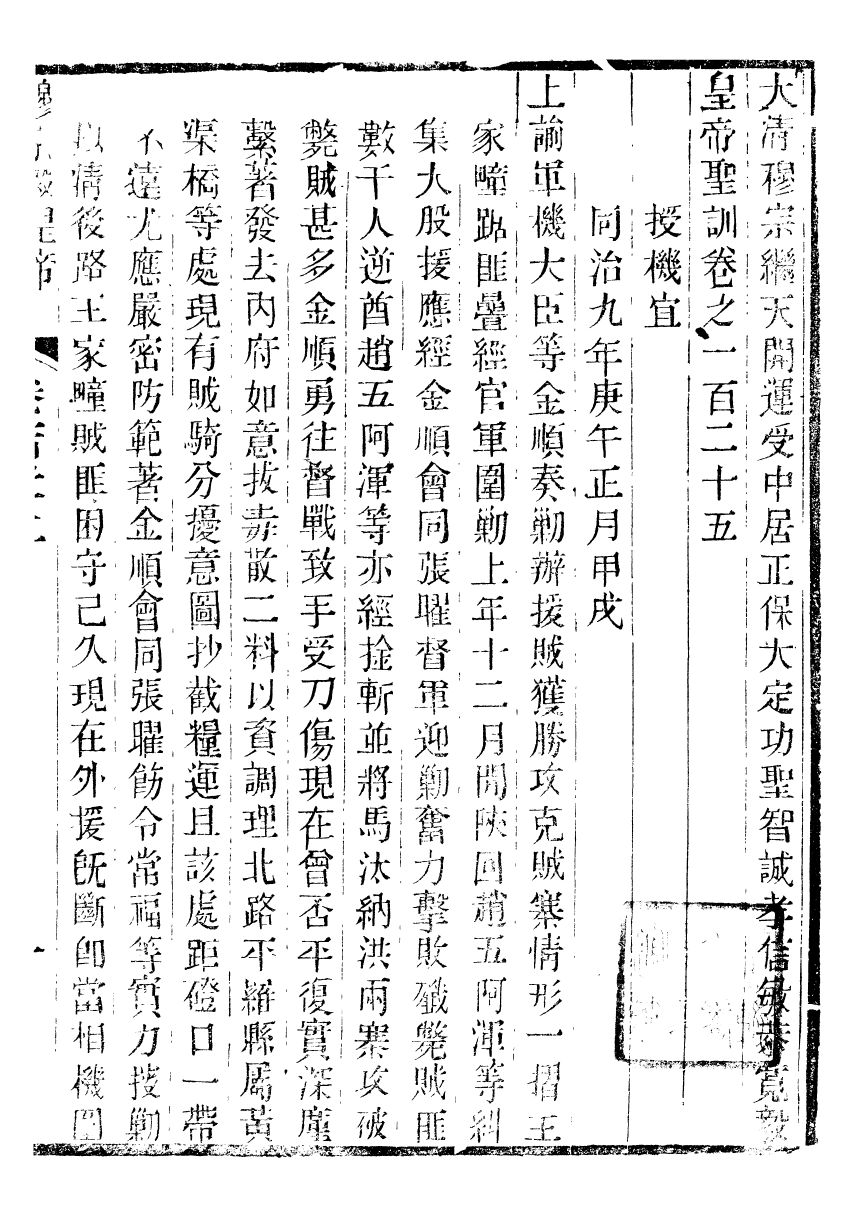 大清穆宗繼天開運受中居正保大定功聖智誠孝信敏恭寬毅
皇帝聖訓卷之一百二十五
授機宜
同治九年庚午正月甲戌
上諭軍機大臣等金順奏勦辦援賊獲勝攻克賊寨情形一摺王
家疃踞匪疊經官軍圍勦上年十二月間陝回趙五阿渾等糾
集大股援應經金順會同張曜督軍迎勦奮力擊敗殲斃賊匪
數千人逆酋趙五阿渾等亦經擒斬並將馬汰納洪兩寨攻破
斃賊甚多金順勇往督戰致手受刀傷現在曾否平復實深廑
繫著發去內府如意拔毒散二料以資調理北路平羅縣屬黃
渠橋等處現有賊騎分擾意圖抄截糧運且該處距磴口一帶
不遠尤應嚴密防範著金順會同張曜飭令常福等實力技勦
以清後路王家疃賊匪困守已久現在外援旣斷卽當相機圖
毅皇帝
一